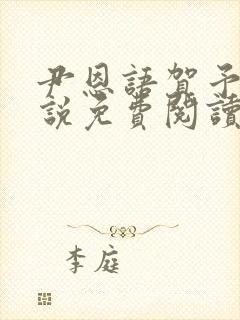 尹恩語賀予
說免費閱讀
李庭